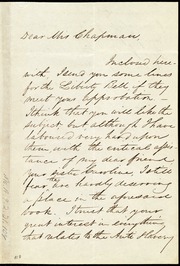 Dear Mrs Chapman
Inclosed here-
with I send you some lines
for the Liberty Bell if they
meet your approbation -
I think that you will like the
subject but although I have
laboured very hard upon
them with the critical assis-
tance of my dear friend
your sister Caroline, I still
fear are hardly deserving
a place in the
book. I trust that your
great interest in everything
that relates to the Anti Slavery